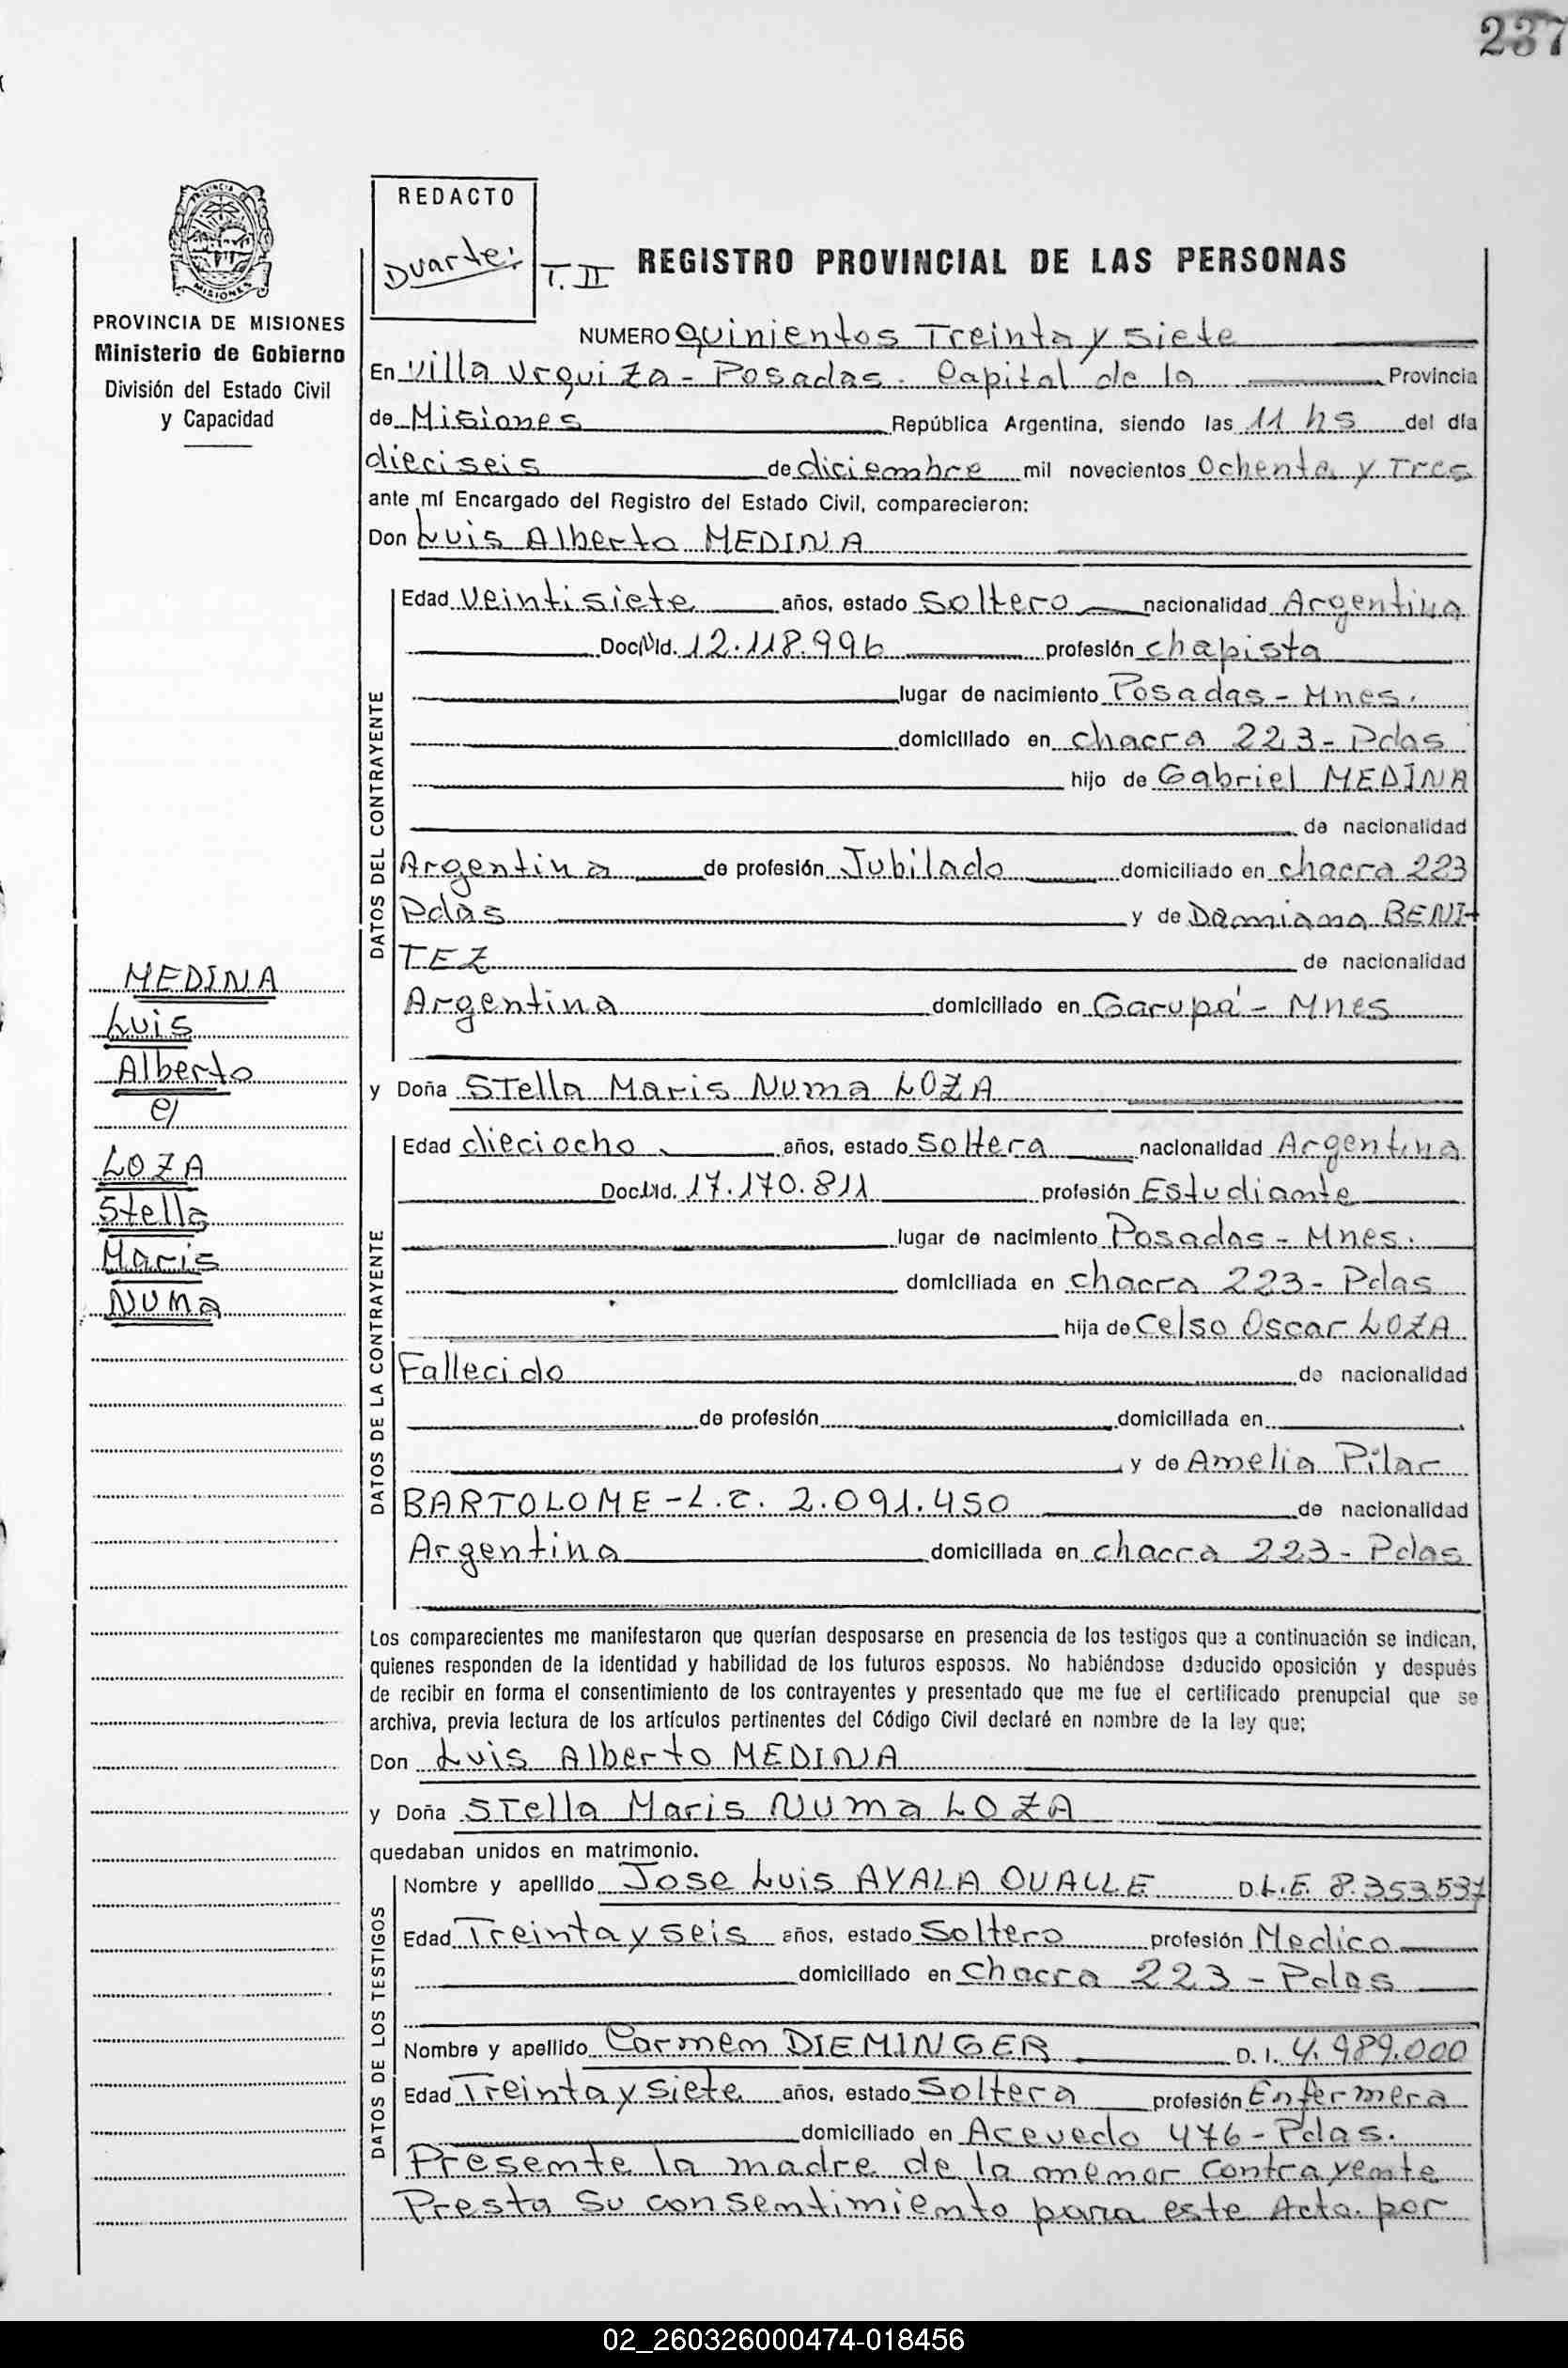 237
REDACTO
Duarte.
T. II
REGISTRO PROVINCIAL DE LAS PERSONAS
PROVINCIA DE MISIONES
Ministerio de Gobierno
División del Estado Civil
y Capacidad
NUMERO Quinientos Treinta y Siete
En Villa Urquiza - Posadas. Capital de la Provincia
de Misiones República Argentina, siendo las 11 hs del día
dieciseis de diciembre mil novecientos Ochenta y Tres
ante mí Encargado del Registro del Estado Civil, comparecieron:
Don Luis Alberto MEDINA
DATOS DEL CONTRAYENTE
Edad veintisiete años, estado Soltero nacionalidad Argentina
Doc. Id. 12.118.996 profesión chapista
lugar de nacimiento Posadas - Mnes.
domiciliado en chacra 223 - Pdas
hijo de Gabriel MEDINA
de nacionalidad
Argentina de profesión Jubilado domiciliado en chacra 223
Pdas y de Damiana BENI-
TEZ de nacionalidad
Argentina domiciliado en Garupá - Mnes
MEDINA
Luis
Alberto
c/
LOZA
Stella
Maris
Numa
y Doña Stella Maris Numa LOZA
DATOS DE LA CONTRAYENTE
Edad dieciocho años, estado Soltera nacionalidad Argentina
Doc. Id. 17.170.811 profesión Estudiante
lugar de nacimiento Posadas - Mnes.
domiciliada en chacra 223 - Pdas
hija de Celso Oscar LOZA
Fallecido de nacionalidad
de profesión domiciliada en
y de Amelia Pilar
BARTOLOME - L.C. 2.091.450 de nacionalidad
Argentina domiciliada en chacra 223 - Pdas
Los comparecientes me manifestaron que querían desposarse en presencia de los testigos que a continuación se indican,
quienes responden de la identidad y habilidad de los futuros esposos. No habiéndose deducido oposición y después
de recibir en forma el consentimiento de los contrayentes y presentado que me fue el certificado prenupcial que se
archiva, previa lectura de los artículos pertinentes del Código Civil declaré en nombre de la ley que;
Don Luis Alberto MEDINA
y Doña Stella Maris Numa LOZA
quedaban unidos en matrimonio.
DATOS DE LOS TESTIGOS
Nombre y apellido Jose Luis AYALA OVALLE D.L.E. 8.353.537
Edad Treinta y seis años, estado Soltero profesión Medico
domiciliado en Chacra 223 - Pdas
Nombre y apellido Carmen DIEMINGER D. I. 4.989.000
Edad Treinta y siete años, estado Soltera profesión Enfermera
domiciliado en Acevedo 476 - Pdas.
Presente la madre de la menor contrayente
Presta su consentimiento para este Acto. por
02_260326000474-018456